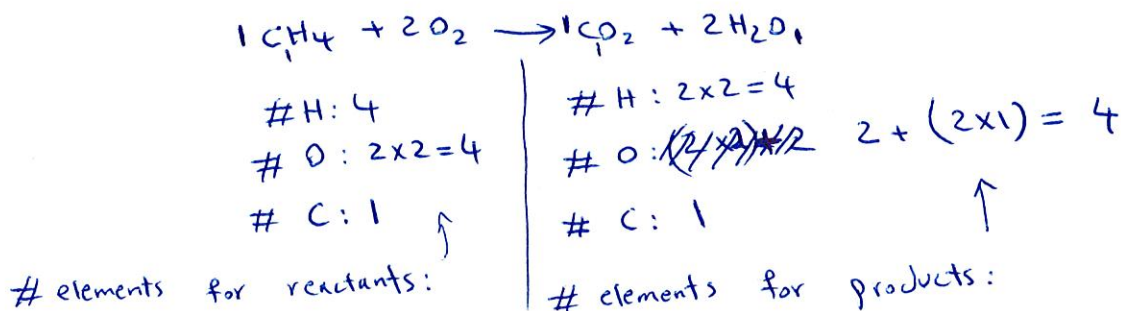 1 C₁H₄ + 2O₂ → 1C₁O₂ + 2H₂O₁
#H: 4
# O: 2x2=4
# C: 1
# elements for reactants:
# H: 2x2=4
# O: 2 + (2x1) = 4
# C: 1
# elements for products: